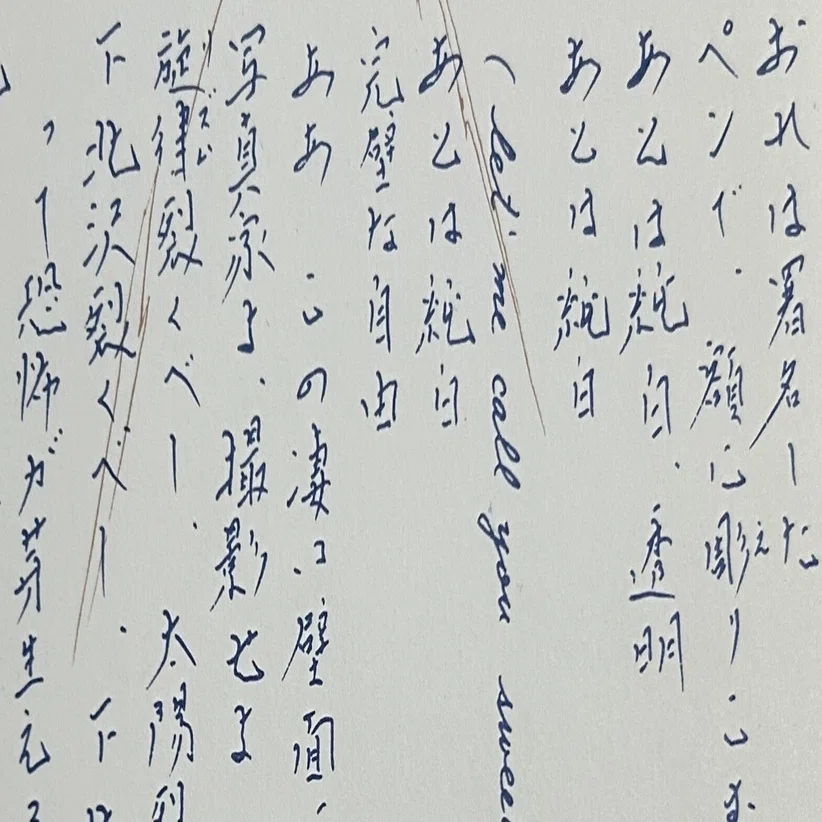 おれは署名した
ペンで、額に彫りこむ
あとは純白、透明
あとは純白
(let' me call you swee
あとは純白
完璧な自由
ああ この凄い壁面、
写真家よ、撮影せよ
旋律裂くべし、太陽裂
リズム
下北沢裂くべし、下北
恐怖が芽生える